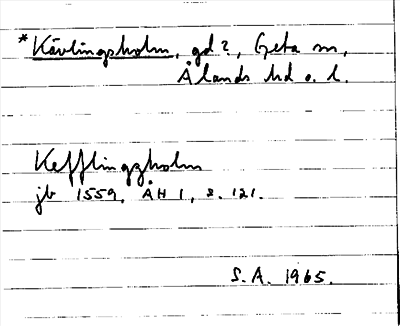 *Kävlingsholm, gd?, Geta sn,
Ålands hd o. l.
Kefflingzholm
jb 1559, ÅH 1, s. 121.
S.A. 1965.